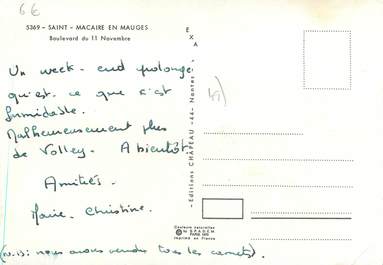 6€
5369 - SAINT - MACAIRE EN MAUGES
Boulevard du 11 Novembre
Un week-end prolongé
qu'est-ce que c'est
formidable.
Malheureusement plus
de Volley. A bientôt.
Amitiés.
Marie-Christine.
(N.B: nous avons vendu tous les carnets).
EXA
Editions CHAPEAU -44- Nantes
49)
Couleurs naturelles
PARIS
Imprimé en France